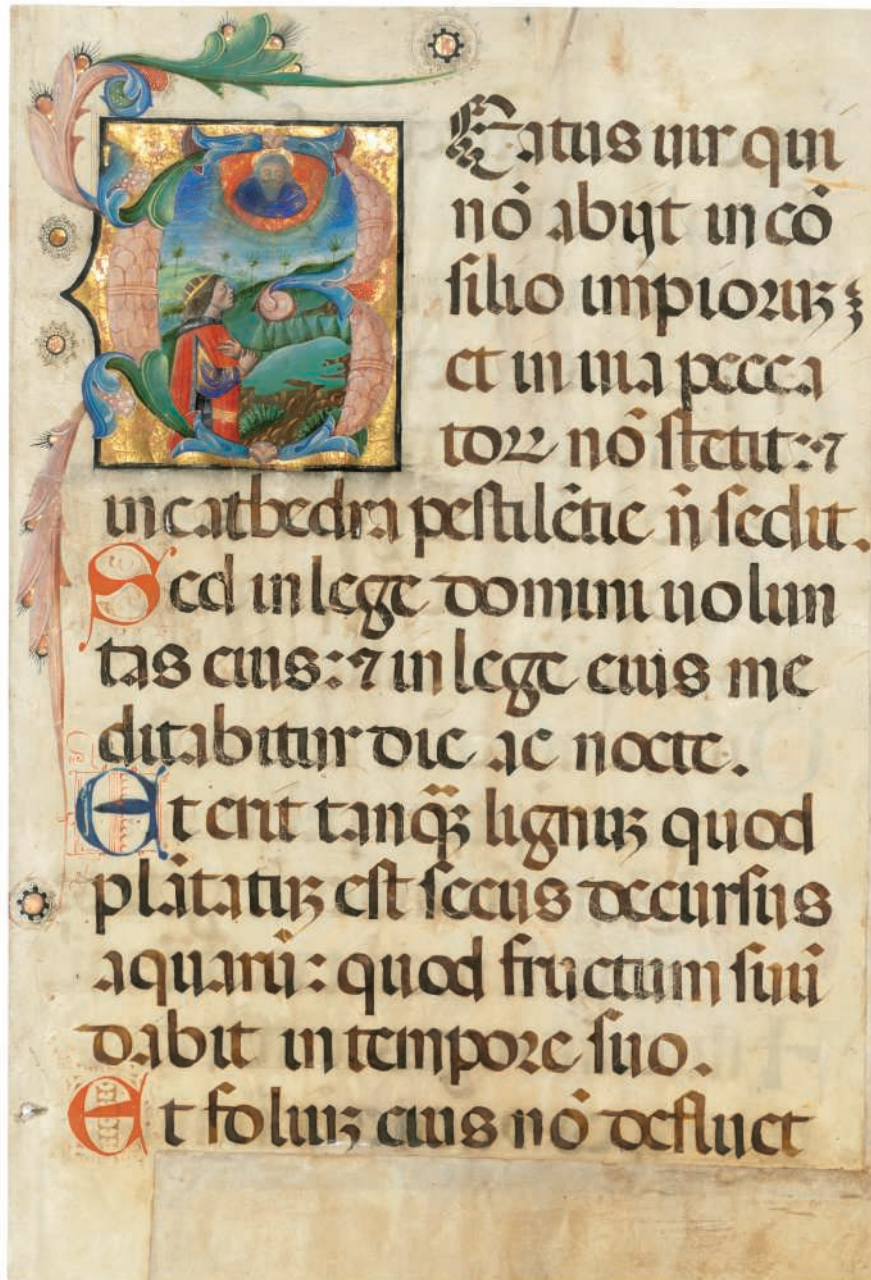 Beatus uir qui
nō abijt in cō
silio impioruꝫ ⁊
et in uia pecca
toꝝ nō stetit: ⁊
in cathedra pestilētie n̄ sedit.
Sed in lege domini uolun
tas eius: ⁊ in lege eius me
ditabitur die ac nocte.
Et erit tanq̄ꝫ lignuꝫ quod
plātatuꝫ est secus decursus
aquarū: quod fructum suū
dabit in tempore suo.
Et foliuꝫ eius nō defluet